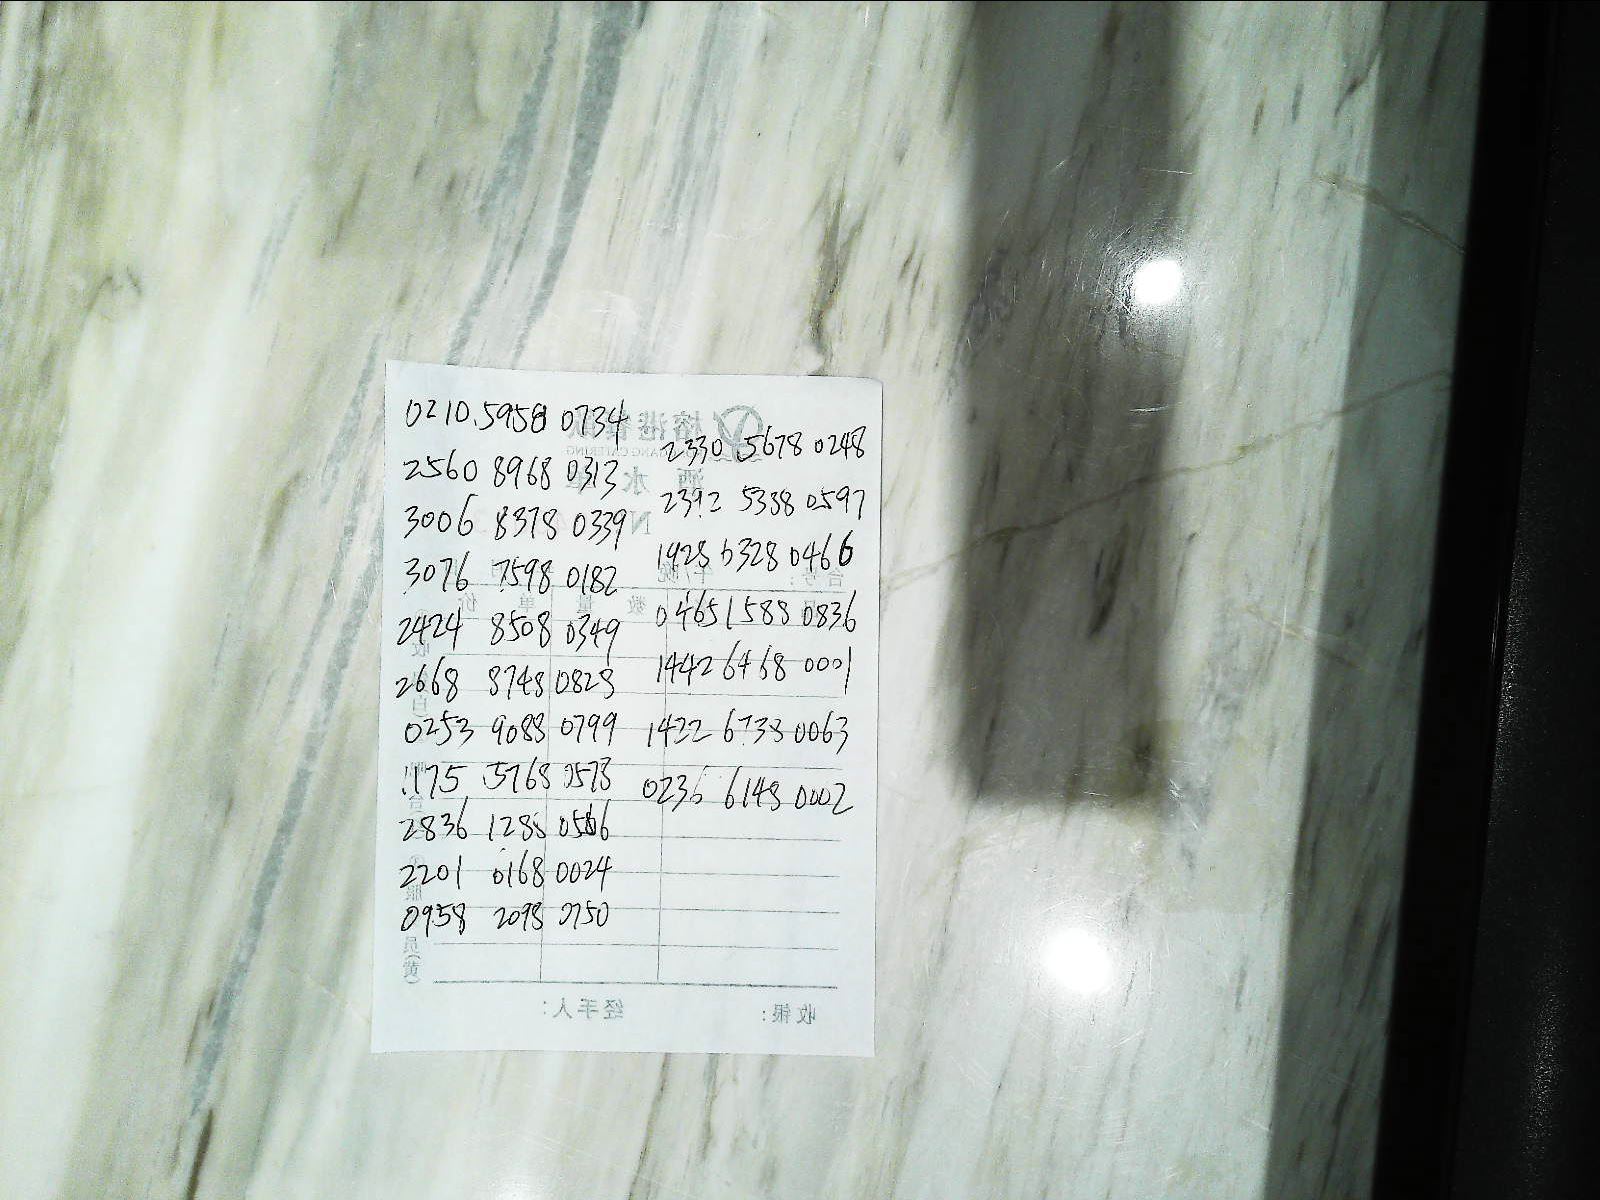 0210.5958 0734
2560 8968 0313
3006 8378 0339
3076 7598 0182
2424 8508 0349
2668 8748 0828
0253 9088 0799
.175 5768 0573
2836 1288
2201 0168 0024
0958 2098 0750
2330 5678 0248
2392 5338 0597
1928 6328 0466
0465 1588 0836
1442 6468 0001
1422 6738 0063
0236 6148 0002
榕港餐饮
酒水单
N
台号:
数量
单价
经手人:
收银:
员(黄)